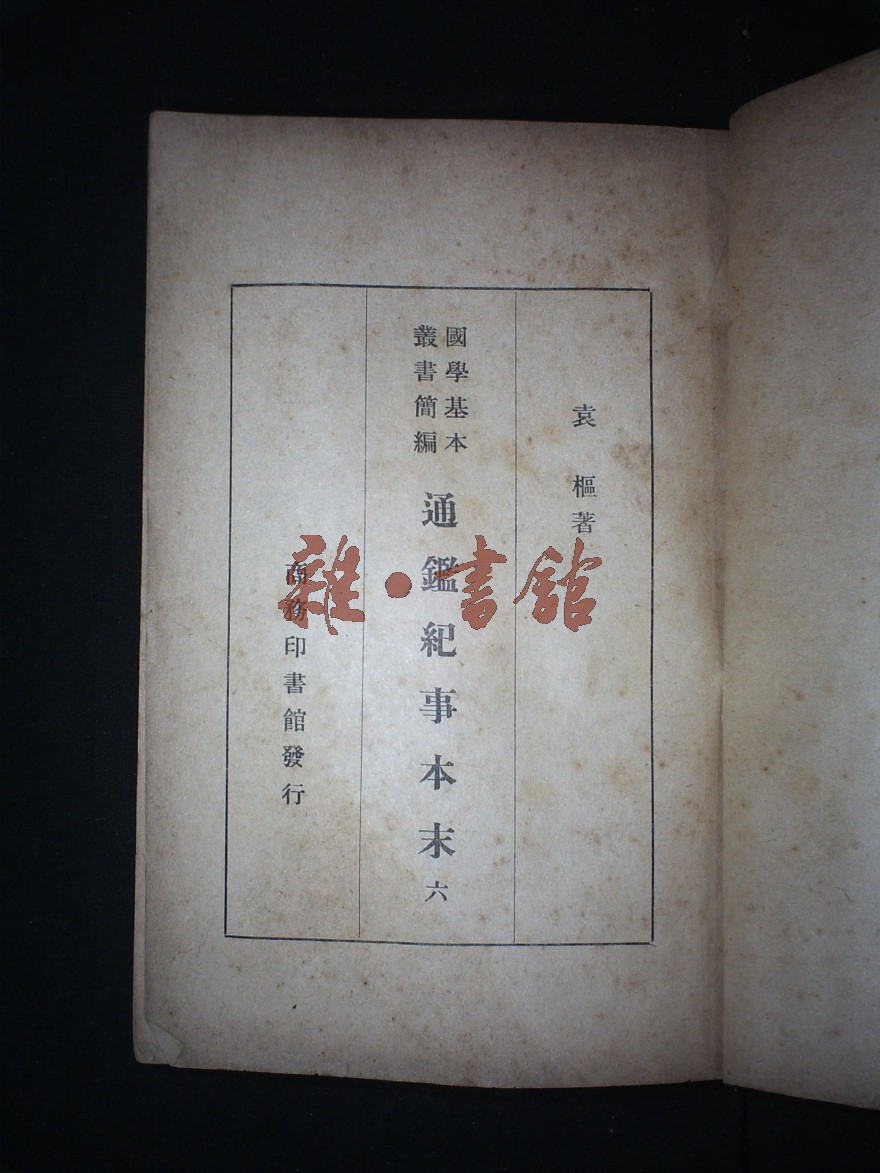 袁樞著
國學基本
叢書簡編
通鑑紀事本末 六
商務印書館發行
雜·書館